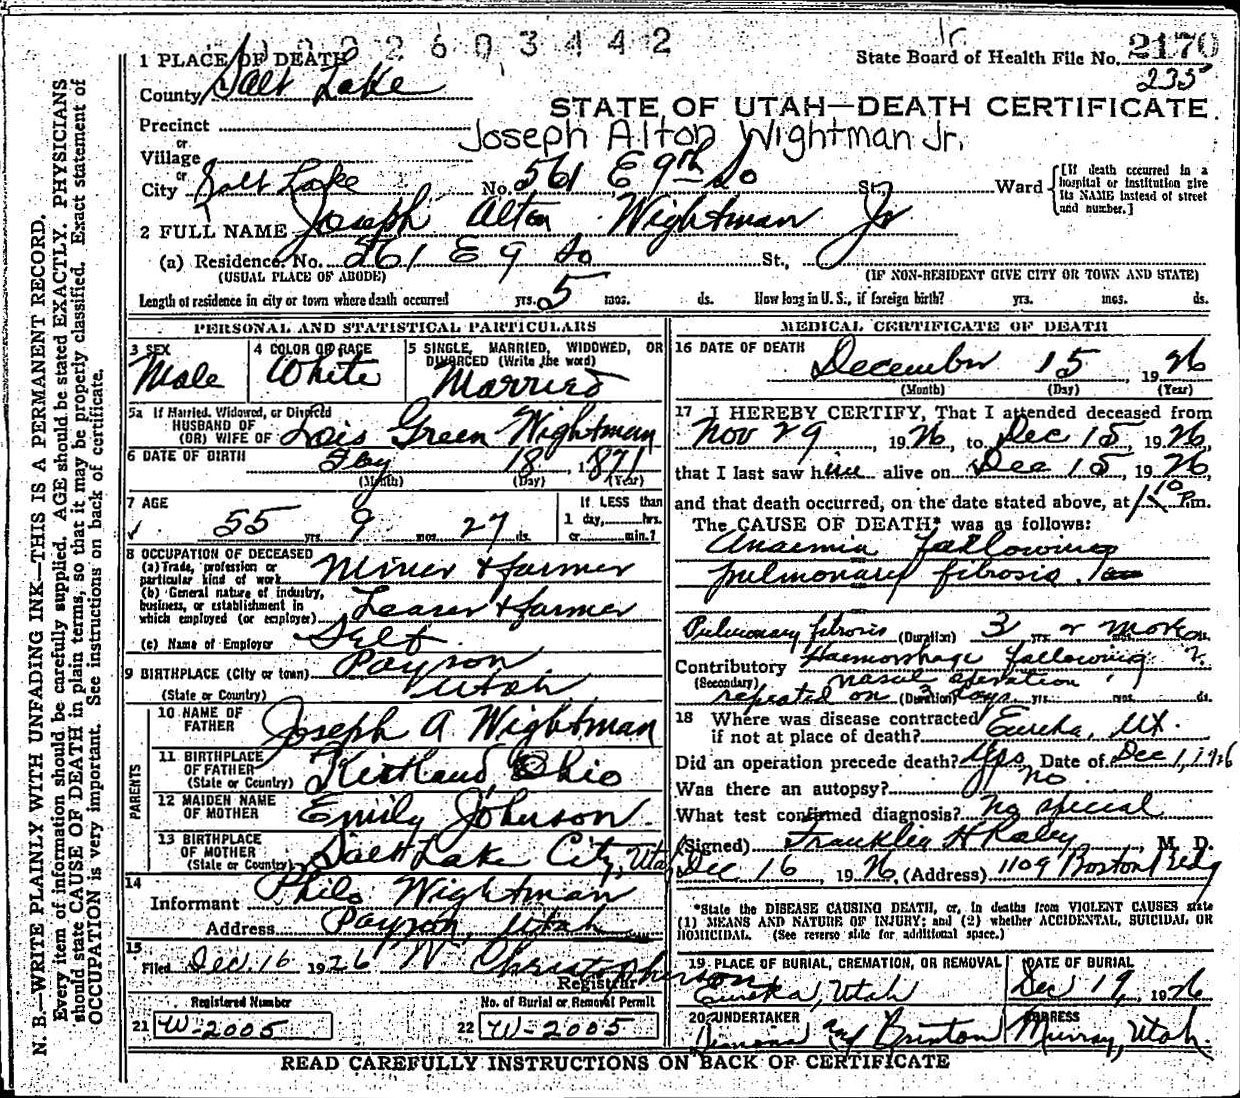 0022603442
Jr
State Board of Health File No. 2170
235
1 PLACE OF DEATH
County Salt Lake
STATE OF UTAH—DEATH CERTIFICATE
Precinct
or
Joseph Alton Wightman Jr.
Village
or
City Salt Lake No. 561 E 9th So St., Ward
[If death occurred in a hospital or institution give its NAME instead of street and number.]
2 FULL NAME Joseph Alton Wightman Jr
(a) Residence. No. 561 E 9 So St.,
(USUAL PLACE OF ABODE) (IF NON-RESIDENT GIVE CITY OR TOWN AND STATE)
Length of residence in city or town where death occurred yrs. 5 mos. ds. How long in U. S., if foreign birth? yrs. mos. ds.
PERSONAL AND STATISTICAL PARTICULARS
3 SEX
Male
4 COLOR OR RACE
White
5 SINGLE, MARRIED, WIDOWED, OR DIVORCED (Write the word)
Married
5a If Married, Widowed, or Divorced
HUSBAND OF
(OR) WIFE OF Lois Green Wightman
6 DATE OF BIRTH
18, 1871
(Month) (Day) (Year)
7 AGE
55 yrs. 9 mos. 27 ds.
If LESS than
1 day, hrs.
or min.?
8 OCCUPATION OF DECEASED
(a) Trade, profession or particular kind of work Miner & farmer
(b) General nature of industry, business, or establishment in which employed (or employer) Leaser & farmer
(c) Name of Employer Self
9 BIRTHPLACE (City or town) Payson
(State or Country) Utah
PARENTS
10 NAME OF FATHER Joseph A Wightman
11 BIRTHPLACE OF FATHER (State or Country) Kirtland, Ohio
12 MAIDEN NAME OF MOTHER Emily Johnson
13 BIRTHPLACE OF MOTHER (State or Country) Salt Lake City, Utah
14
Informant Philo Wightman
Address Payson, Utah
15
Filed Dec. 16 1926 W Christopherson
Registrar
Registered Number
21 W-2005
No. of Burial or Removal Permit
22 W-2005
MEDICAL CERTIFICATE OF DEATH
16 DATE OF DEATH
December 15, 1926
(Month) (Day) (Year)
17 I HEREBY CERTIFY, That I attended deceased from
Nov 29 1926, to Dec 15, 1926,
that I last saw him alive on Dec 15, 1926,
and that death occurred, on the date stated above, at 1 10 P.m.
The CAUSE OF DEATH* was as follows:
Anaemia following
pulmonary fibrosis.
Pulmonary fibrosis (Duration) 3 yrs. or more
Contributory Haemorrhage following
(Secondary) nasal operation
repeated on (Duration) 3 days yrs. mos. ds.
18 Where was disease contracted
if not at place of death? Eureka, Ut.
Did an operation precede death? Yes Date of Dec 1, 1926
Was there an autopsy? no
What test confirmed diagnosis? no special
(Signed) Franklin H Raley, M. D.
Dec 16, 1926, (Address) 1109 Boston Bldg
*State the DISEASE CAUSING DEATH, or, in deaths from VIOLENT CAUSES state
(1) MEANS AND NATURE OF INJURY; and (2) whether ACCIDENTAL, SUICIDAL OR
HOMICIDAL. (See reverse side for additional space.)
19 PLACE OF BURIAL, CREMATION, OR REMOVAL
Eureka, Utah
DATE OF BURIAL
Dec 19, 1926
20 UNDERTAKER
Brinton
ADDRESS
Murray, Utah.
READ CAREFULLY INSTRUCTIONS ON BACK OF CERTIFICATE
N. B.—WRITE PLAINLY WITH UNFADING INK—THIS IS A PERMANENT RECORD.
Every item of information should be carefully supplied. AGE should be stated EXACTLY. PHYSICIANS
should state CAUSE OF DEATH in plain terms, so that it may be properly classified. Exact statement of
OCCUPATION is very important. See instructions on back of certificate.